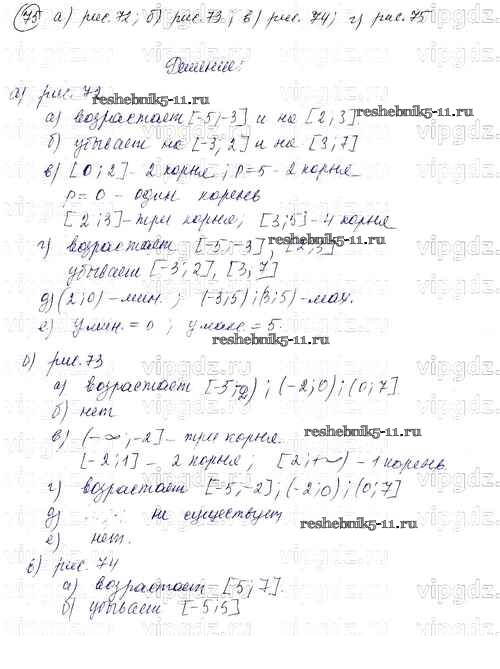 75 а) рис. 72; б) рис. 73; в) рис. 74; г) рис. 75
Решение:
а) рис. 72
reshebnik5-11.ru
а) возрастает [-5;-3] и на [2;3].
б) убывает на [-3;2] и на [3;7]
в) [0;2] - 2 корня; p=5 - 2 корня
p=0 - один корень
[2;3] - три корня; [3;5] - 4 корня
г) возрастает [-5;-3], [2;3]
reshebnik5-11.ru
убывает [-3;2], [3,7]
д) (2;0) - мин.; (-3;5); (3;5) - max.
е) y мин. = 0; y макс. = 5.
reshebnik5-11.ru
б) рис. 73
а) возрастает [-5;-2); (-2;0); (0;7]
б) нет
reshebnik5-11.ru
в) (-∞;-2] - три корня.
[-2;1] - 2 корня; [2;+∞) - 1 корень
г) возрастает [-5,-2]; (-2;0); (0;7]
д) не существует
reshebnik5-11.ru
е) нет.
в) рис. 74
а) возрастает [5;7].
reshebnik5-11.ru
б) убывает [-5;5]
vipgdz.ru